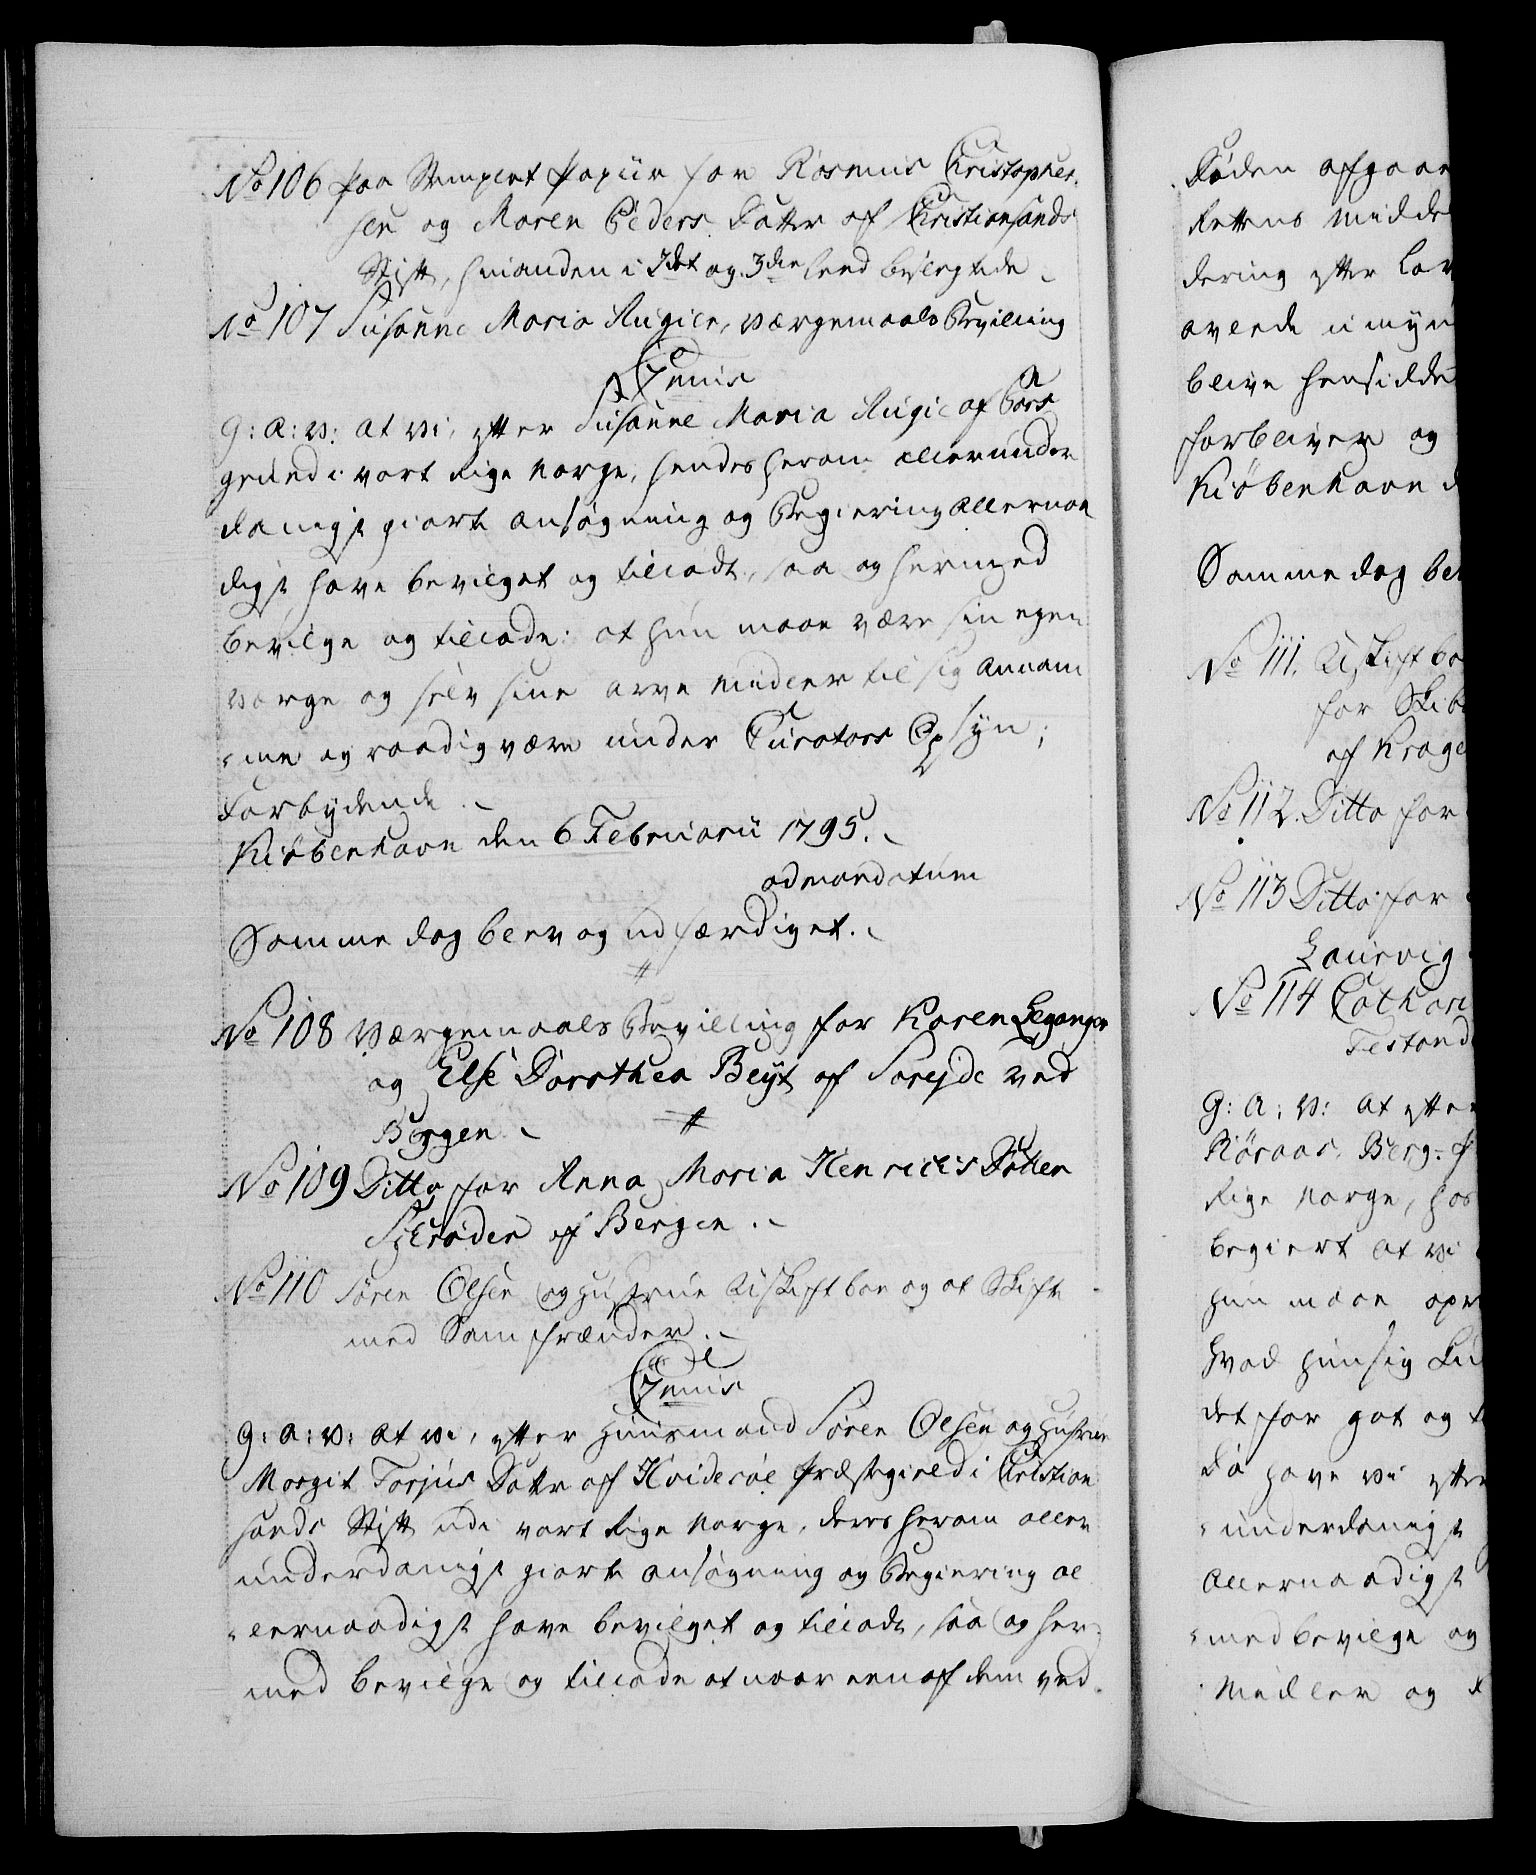 No 106 paa Stemplet Papiir for Rasmus Christopher-
sen og Maren Peders Datter af Christiansands
Stift, hinanden i 2det og 3die Leed beslegtede
No 107 Susanne Maria Augier, Værgemaals Bevilling
C7mus
G: A: V: at vi, efter Susanne Maria Augie af Pors
grund i vort Rige Norge, hendes herom allerunder
danigst giorte ansøgning og Begiering allernaa
digst have bevilget og tilladt, saa og hermed
bevilge og tillade: at hun maae være sin egen
værge og selv sine arve Midler til sig annam
-me og raadig være under Curators Opsyn;
Forbydende
Kiøbenhavn den 6 Februarii 1795.
ad mandatum
Samme dag blev og udfærdiget.
No 108 Værgemaals Bevilling for Karen Legangen
og Else Dorothea Beyt af Sarejde ved
Bergen
No 109 Ditto for Anna Maria Henrichs Datter
Schrøder af Bergen
No 110 Søren Olsen og Hustrue Uskiftboe og at Skifte
med Samfrænder
C7mus
G: A: V: at vi, efter Huusmand Søren Olsen og Hustrue
Margit Torjus Datter af Hvidesøe Præstegield i Christian
sands Stift udi vort Rige Norge, deres herom aller
underdanigst giorte ansøgning og Begiering al
-lernaadigst have bevilget og tilladt, saa og her-
med bevilge og tillade at naar een af dem ved
Døden afgaaer
Rettens Midde
dering efter Lov
blive hensidde
forbliver og
Kiøbenhavn d
Samme dag ble
No 111. Uskiftbo
for Skib
af Krage
No 112. Ditto for
No 113 Ditto for
Laurvig
No 114 Cathari
G: A: V: at efter
Røraas Berg-
Rige Norge, hos
begiert at vi
hun maae opr
hvad hun sig
det for got og
Da have vi efter
-underdanigst
Allernaadigst
-med bevilge og
Midler og